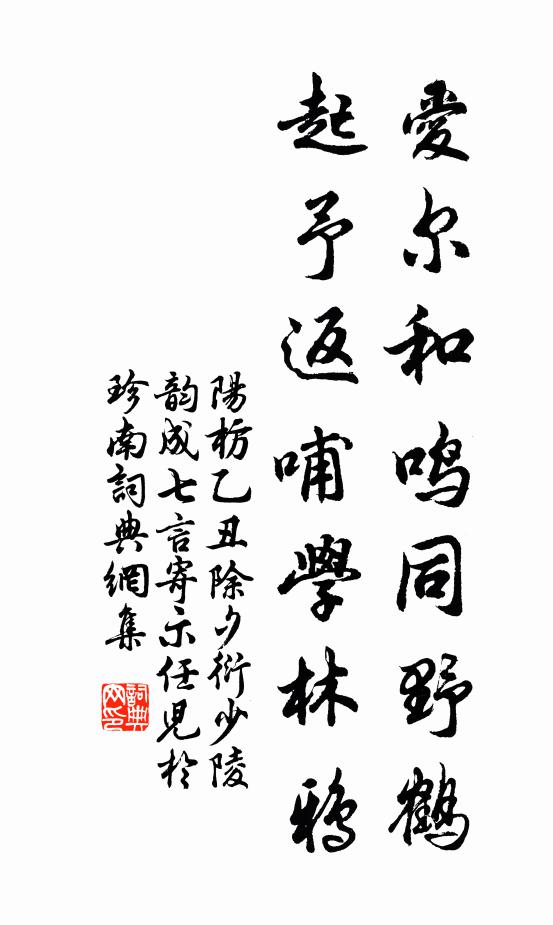 愛尔和鳴同野鶴
起予返哺學林鴉
陽枋乙丑除夕衍少陵
韵成七言寄示任兒於
珍南詞典網集
詞典網印